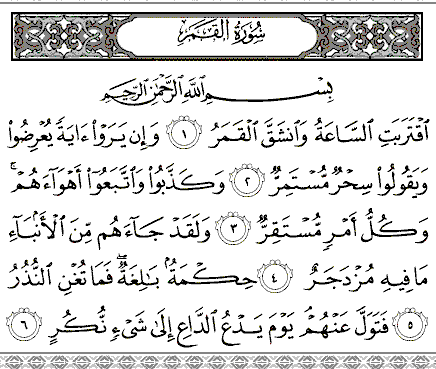 سُورَةُ القَمَرِ
بِسْمِ ٱللَّهِ ٱلرَّحْمَٰنِ ٱلرَّحِيمِ
ٱقْتَرَبَتِ ٱلسَّاعَةُ وَٱنشَقَّ ٱلْقَمَرُ ١ وَإِن يَرَوْا۟ ءَايَةً يُعْرِضُوا۟
وَيَقُولُوا۟ سِحْرٌ مُّسْتَمِرٌّ ٢ وَكَذَّبُوا۟ وَٱتَّبَعُوٓا۟ أَهْوَآءَهُمْ ۚ
وَكُلُّ أَمْرٍ مُّسْتَقِرٌّ ٣ وَلَقَدْ جَآءَهُم مِّنَ ٱلْأَنۢبَآءِ
مَا فِيهِ مُزْدَجَرٌ ٤ حِكْمَةٌۢ بَٰلِغَةٌ ۖ فَمَا تُغْنِ ٱلنُّذُرُ
٥ فَتَوَلَّ عَنْهُمْ ۘ يَوْمَ يَدْعُ ٱلدَّاعِ إِلَىٰ شَىْءٍ نُّكُرٍ ٦